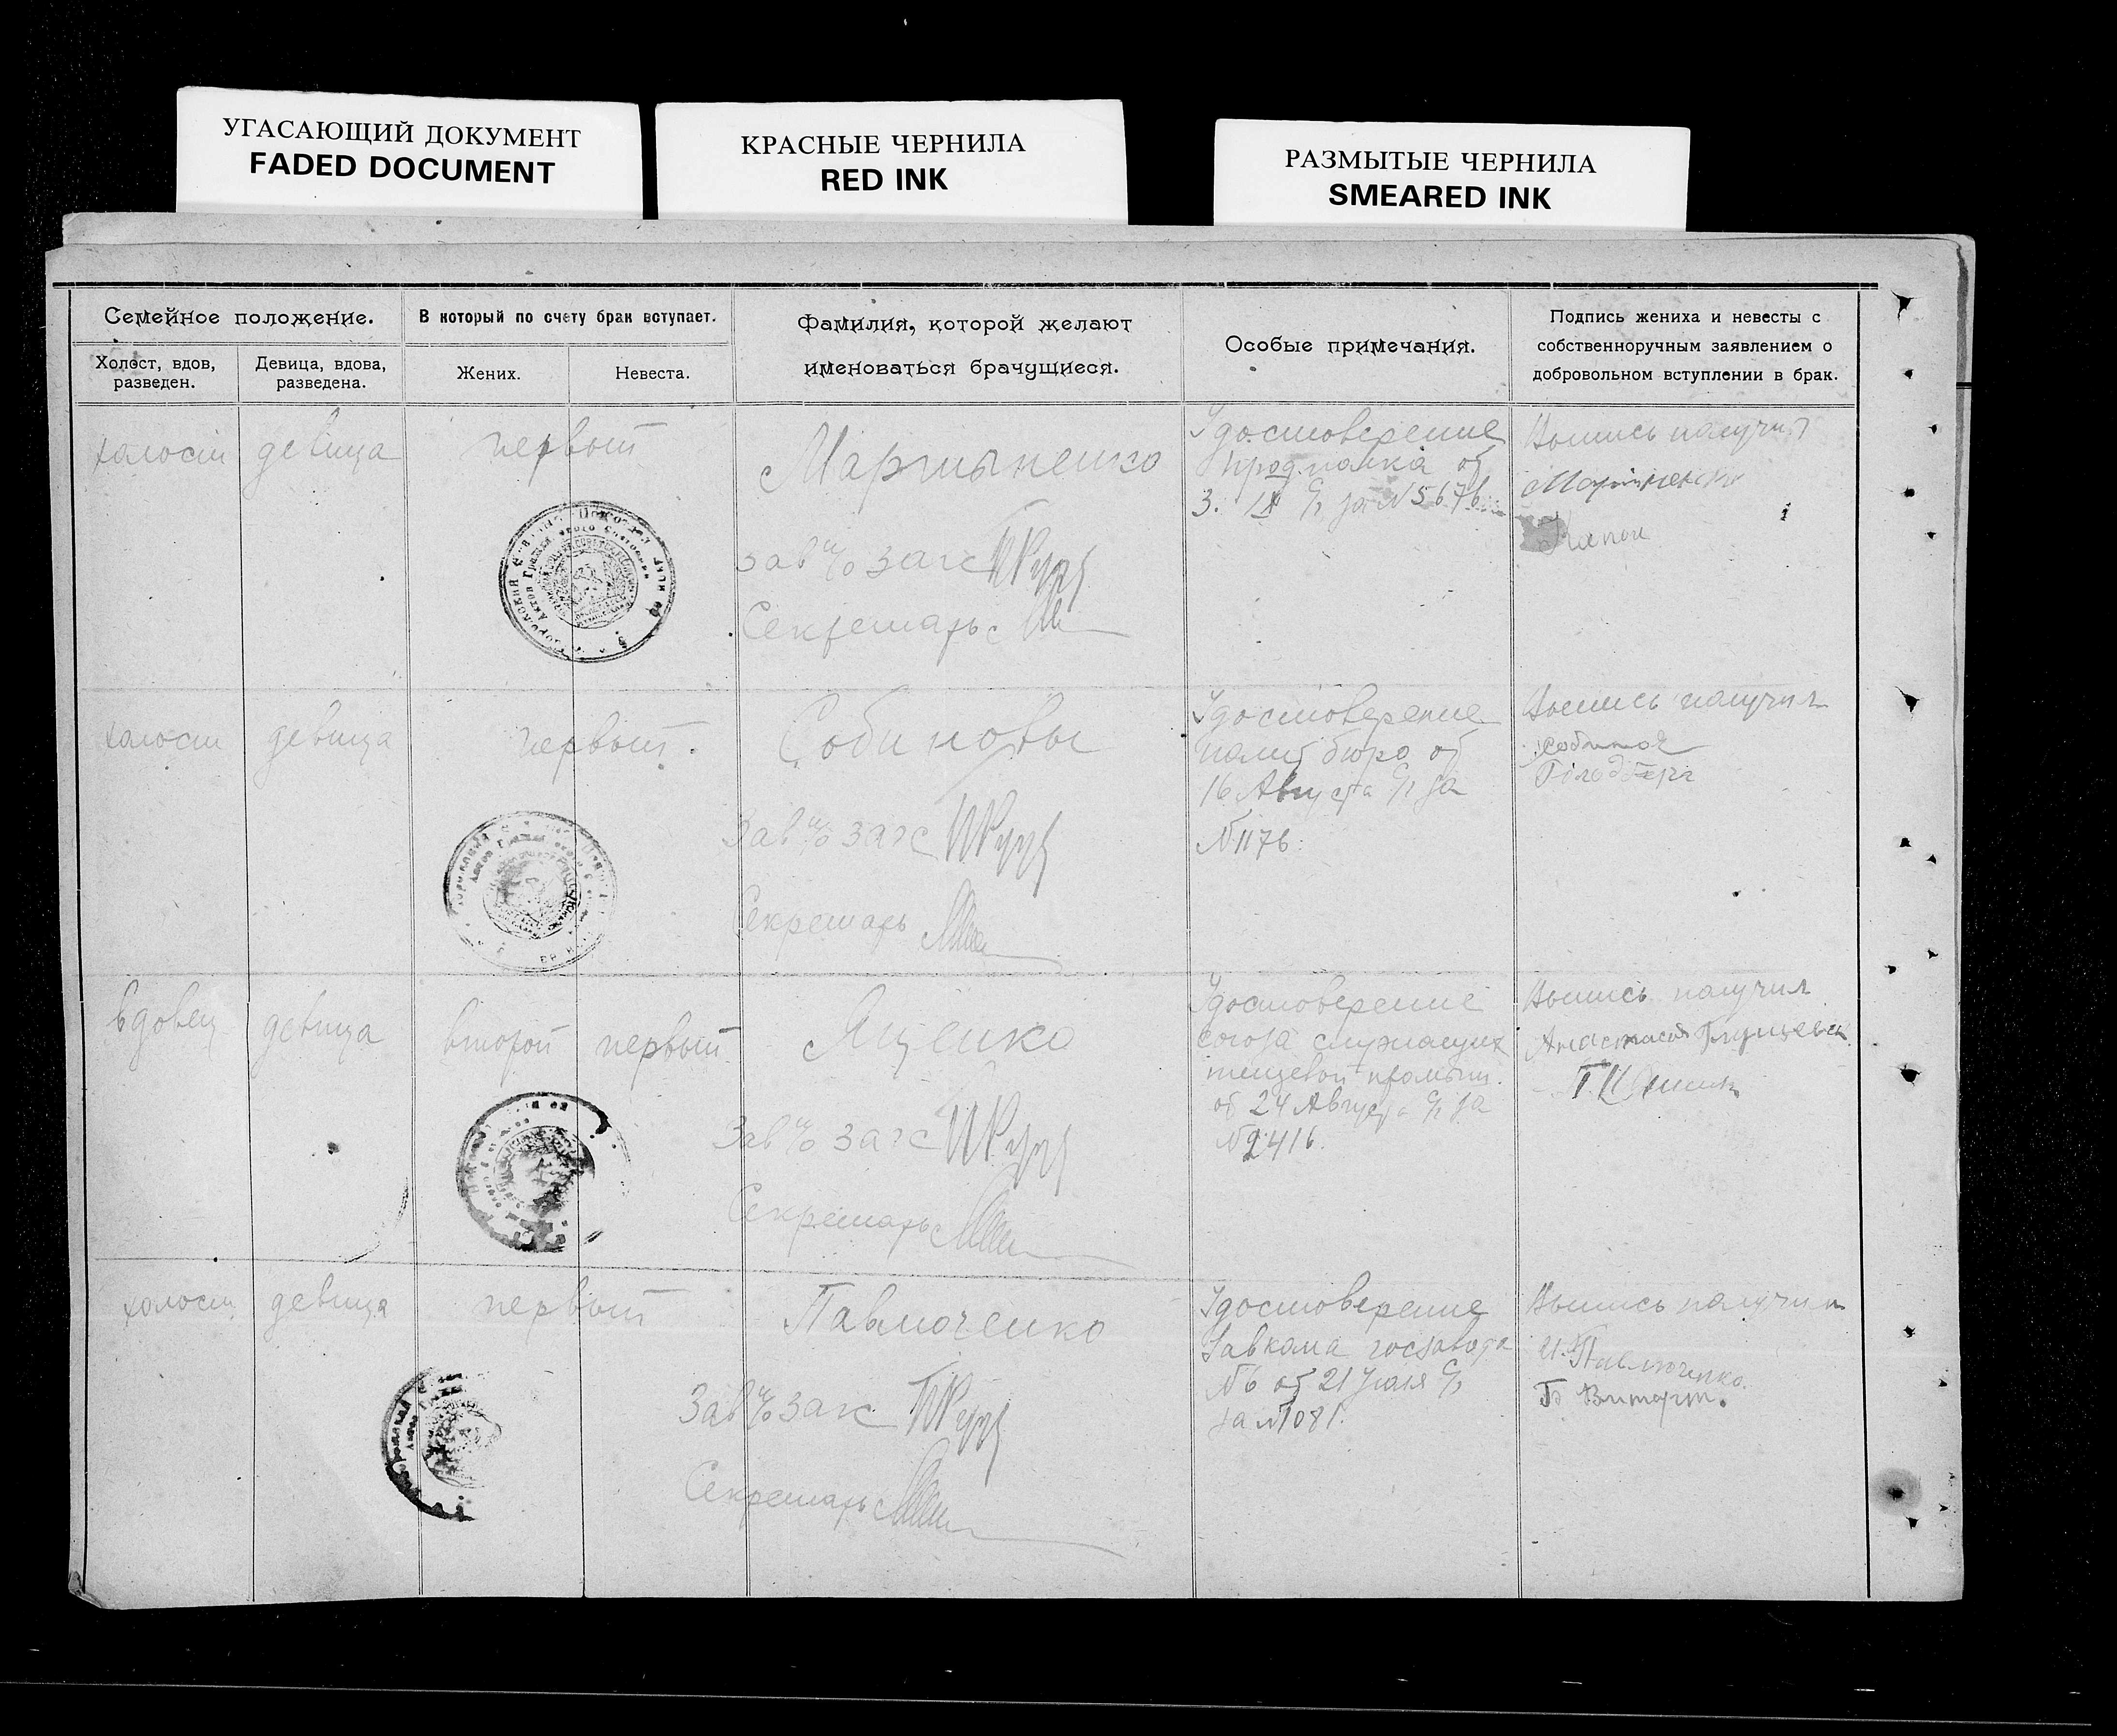 УГАСАЮЩИЙ ДОКУМЕНТ
FADED DOCUMENT
КРАСНЫЕ ЧЕРНИЛА
RED INK
РАЗМЫТЫЕ ЧЕРНИЛА
SMEARED INK
Семейное положение.
Холост, вдов,
разведен.
Девица, вдова,
разведена.
В который по счету брак вступает.
Жених.
Невеста.
Фамилия, которой желают
именоваться брачущиеся.
Особые примечания.
Подпись жениха и невесты с
собственноручным заявлением о
добровольном вступлении в брак.
холост
девица
первый
Мартыненко
Зав п/о загс
Секретарь
Удостоверение
продполка от
3. IX с/г за № 5676
Выпись получил
Мартиненко
холост
девица
первый.
Собиновы
Зав п/о загс
Секретарь
Удостоверение
полит бюро от
16 Августа с/г за
№ 1176.
Выпись получил
Собинов
вдовец
девица
второй
первый
Яценко
Зав п/о загс
Секретарь
Удостоверение
союза служащих
пищевой промыш.
от 24 Августа с/г за
№ 2416.
Выпись получил
Анастасия
холост
девица
первый
Павлюченко
Зав п/о загс
Секретарь
Удостоверение
Завкома госзавода
№ 6 от 21 Июля с/г
за № 1081.
Выпись получил
И. Павлюченко.